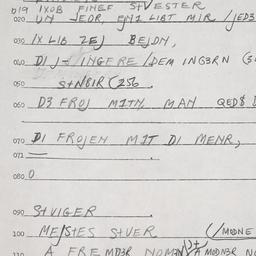 019 IXOB FINEF S+VESTER
020 UN JEDR, EN1 LIBT MIR /JED3
030 IX LIB ZEJ BEJDN,
040 DI J= INGERE /DEM INGBRN
050 S+NBIR (256
060 D3 FROJ MITN MAN QED8
070 DI FROJEN MIT DI MENR,
071
080 0
090 S+VIGER
100 MEJSTES S+VER (/MODNE
110 A FREMDER NOMEN A MODNER